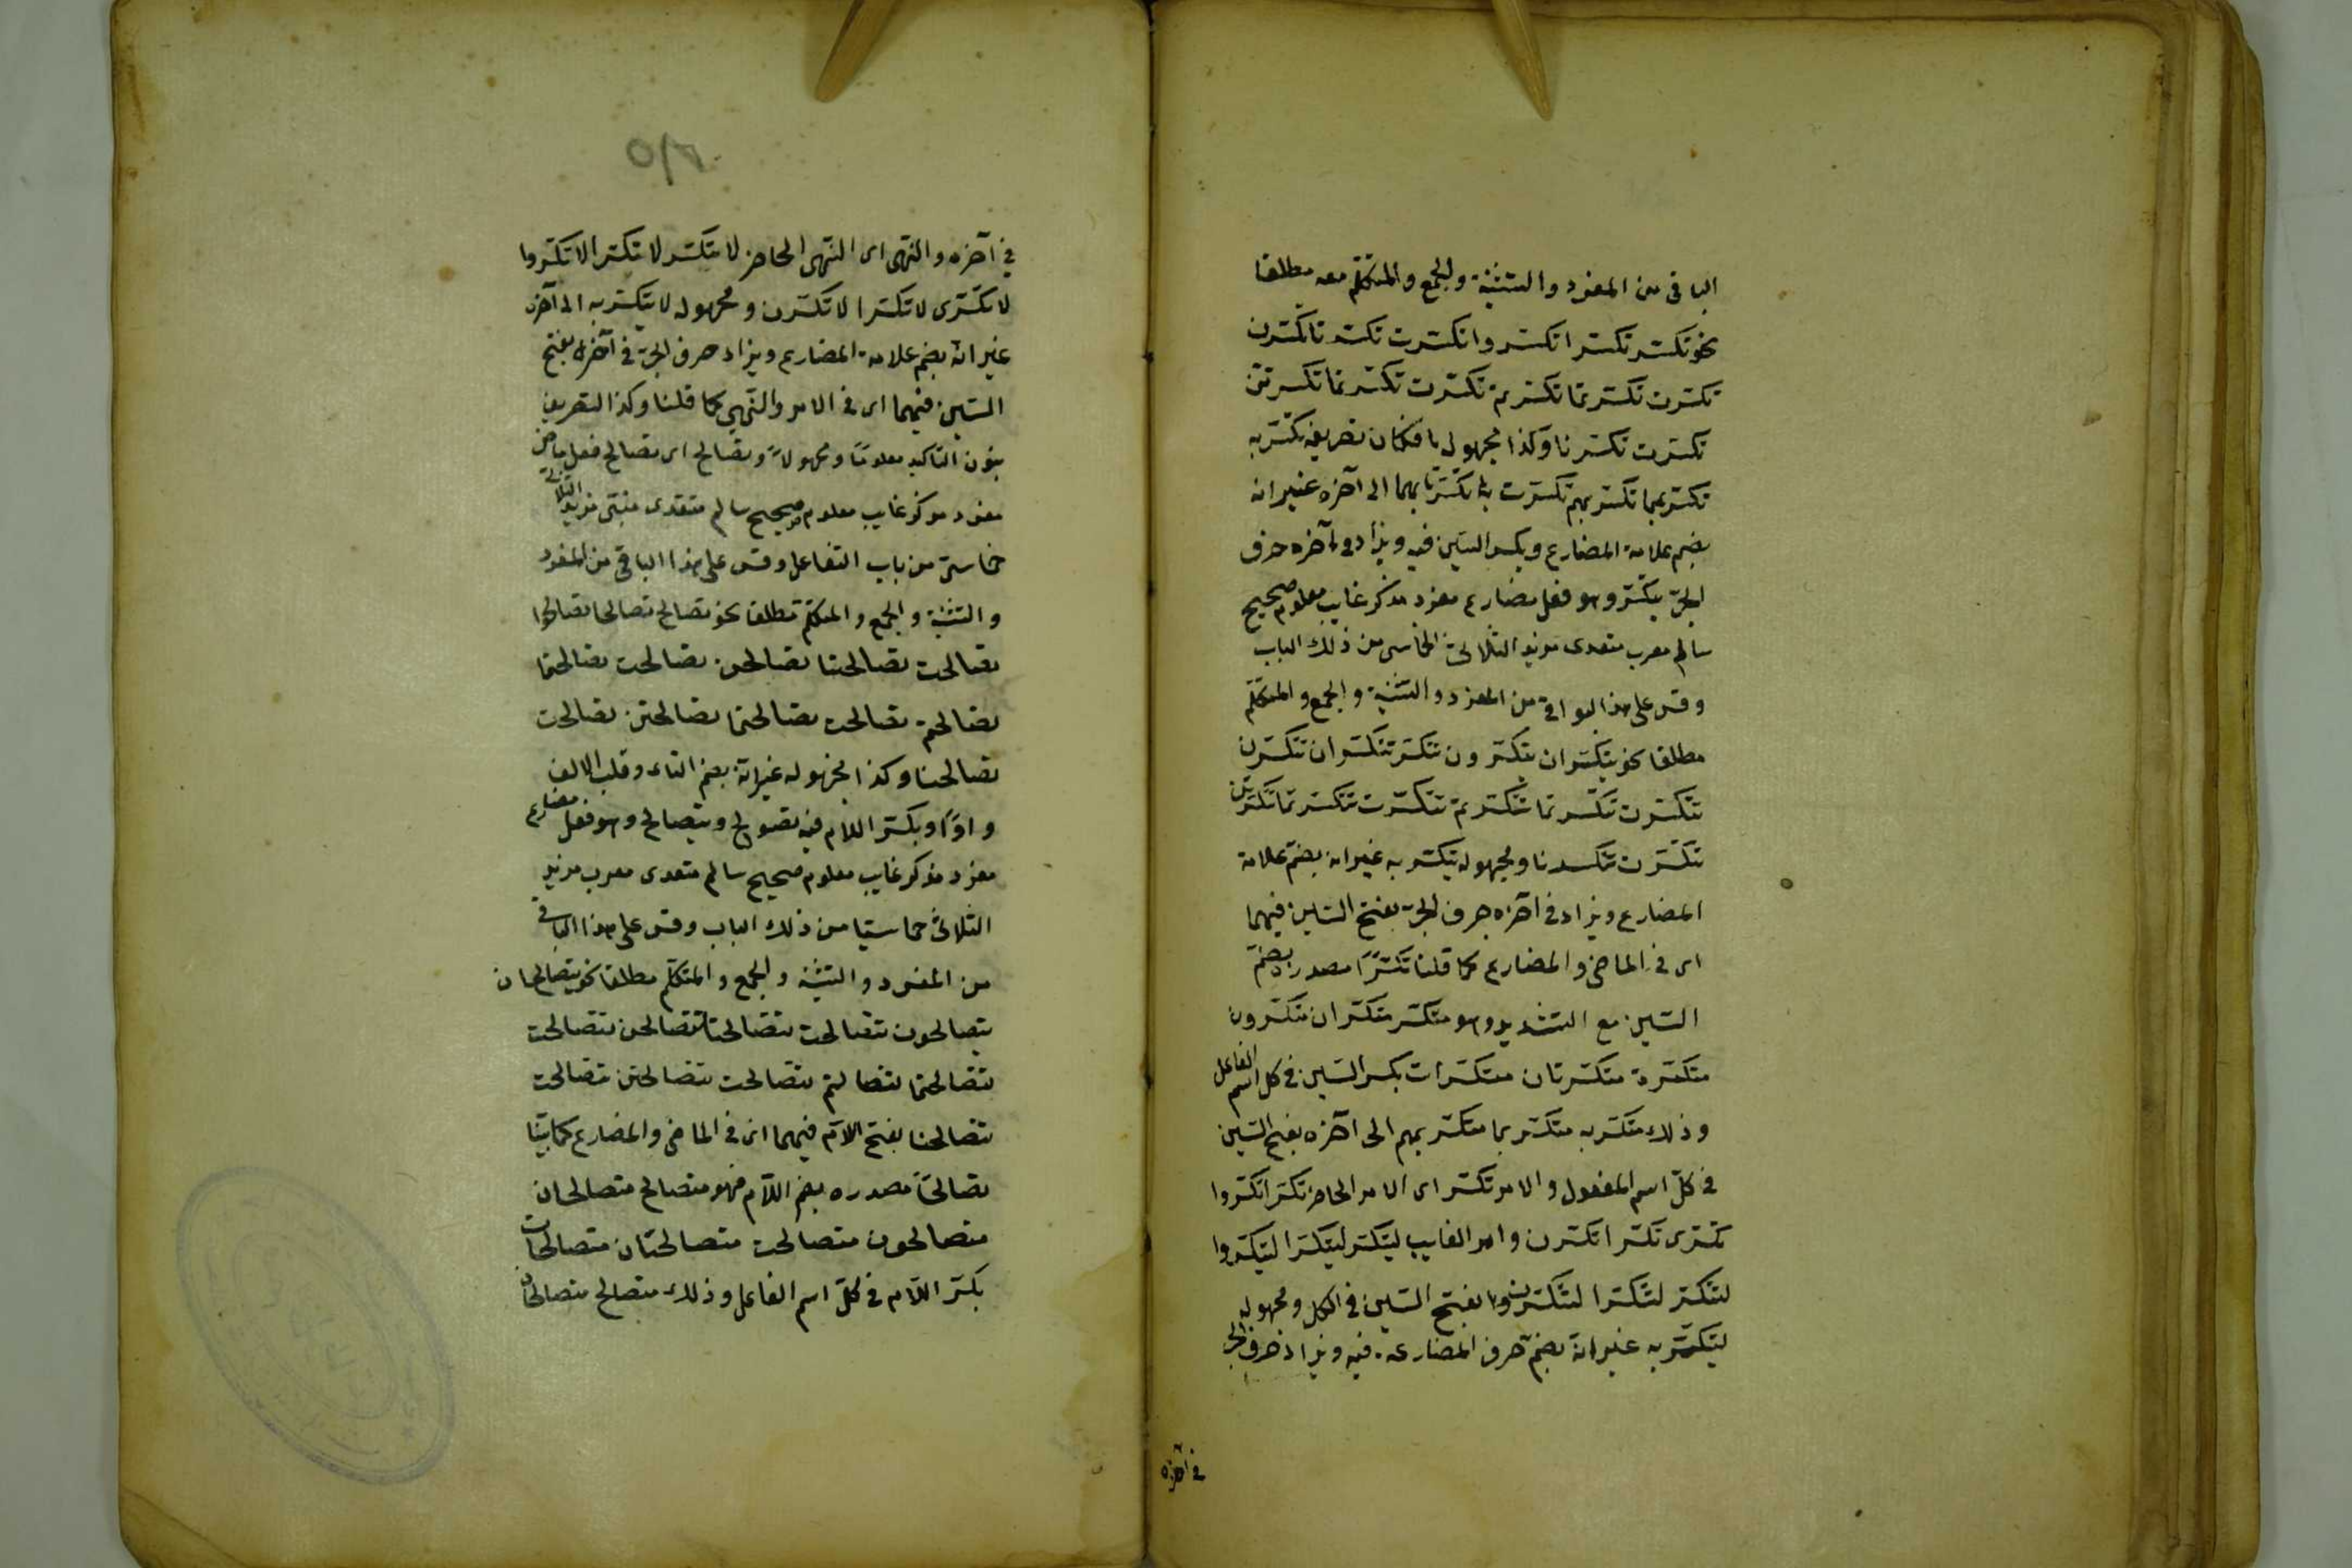 الباقى من المفرد والتثنية والجمع والمتكلم معه مطلقا
نحو تكسر تكسرا تكسروا تكسرت تكسرتا تكسرن
تكسرت تكسرتما تكسرتم تكسرت تكسرتما تكسرتن
تكسرت تكسرنا وكذا مجهوله تصريفه تكسر به
تكسر بهما تكسر بهم تكسرت بها تكسرتا بهما الى آخره غير انه
بضم علامة المضارع وبكسر السين فيه ويزاد فى آخره حرف
الجر يتكسر وهو فعل مضارع مفرد مذكر غايب معلوم صحيح
سالم معرب متعدى مزيد الثلاثى الخماسى من ذلك الباب
وقس على هذا البواقى من المفرد والتثنية والجمع والمتكلم
مطلقا نحو يتكسران يتكسرون تتكسر تتكسران تتكسرن
تتكسرت تتكسرتما تتكسرتم تتكسرت تتكسرتما تتكسرتن
تتكسرت تتكسرنا ومجهوله يتكسر به غير انه بضم علامة
المضارع ويزاد فى آخره حرف الجر بفتح السين فيهما
اى فى الماضى والمضارع كما قلنا تكسرًا مصدر بضم
السين مع التشديد وهو متكسر متكسران متكسرون
متكسرة متكسرتان متكسرات بكسر السين فى كل اسم الفاعل
وذلك متكسر به متكسر بهما متكسر بهم الى آخره بفتح السين
فى كل اسم المفعول والامر تكسر اى الامر الحاضر تكسر تكسرا تكسروا
تكسرى تكسرا تكسرن وامر الغايب ليتكسر ليتكسرا ليتكسروا
لتتكسر لتتكسرا لتتكسرن بفتح السين فى الكل ومجهوله
ليتكسر به غير انه بضم حرف المضارعة فيه ويزاد حرف الجر
فى آخره
فى آخره والنهى اى النهى الحاضر لا تتكسر لا تتكسرا لا تتكسروا
لا تتكسرى لا تتكسرا لا تتكسرن ومجهوله لا يتكسر به الى آخره
غير انه بضم علامة المضارع ويزاد حرف الجر فى آخره بفتح
السين فيهما اى فى الامر والنهى كما قلنا وكذا التصريف
بنون التأكيد معلومًا ومجهولاً وتصالح اى تصالح فعل ماض
مفرد مذكر غايب معلوم صحيح سالم متعدى مبنى مزيد الثلاثى
خماسى من باب التفاعل وقس على هذا الباقى من المفرد
والتثنية والجمع والمتكلم مطلقا نحو تصالح تصالحا تصالحوا
تصالحت تصالحتا تصالحن تصالحت تصالحتما
تصالحتم تصالحت تصالحتما تصالحتن تصالحت
تصالحنا وكذا مجهوله غير انه بضم التاء وقلب الالف
واوًا وبكسر اللام فيه تصولح ويتصالح وهو فعل مضارع
مفرد مذكر غايب معلوم صحيح سالم متعدى معرب مزيد
الثلاثى خماسيا من ذلك الباب وقس على هذا الباقى
من المفرد والتثنية والجمع والمتكلم مطلقا نحو يتصالحان
يتصالحون تتصالحت تتصالحتا تتصالحن تتصالحت
تتصالحتما تتصالحتم تتصالحت تتصالحتن تتصالحت
تتصالحنا بفتح اللام فيهما اى فى الماضى والمضارع كما بينا
تصالحًا مصدره بضم اللام فهو متصالح متصالحان
متصالحون متصالحت متصالحتان متصالحات
بكسر اللام فى كل اسم الفاعل وذلك متصالح متصالحان